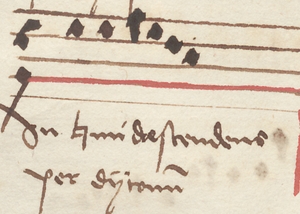 In ♮mi descendens
per dytonū